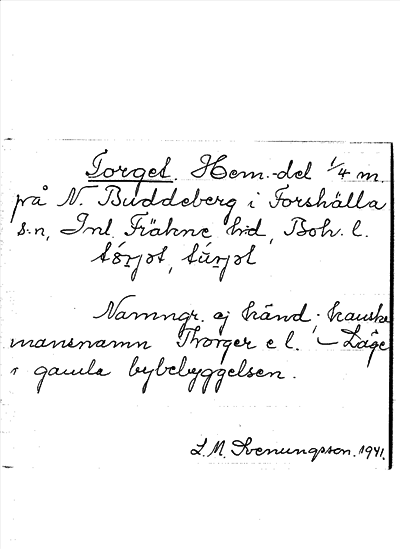 Torget. Hem.-del 1/4 m.
på N. Buddeberg i Forshälla
s:n, Inl. Fräkne h:d, Boh. l.
Namngr. ej känd; kanske
mansnamn Thorger el. — Läge
i gamla bybebyggelsen.
L. M. Svenungsson. 1941.